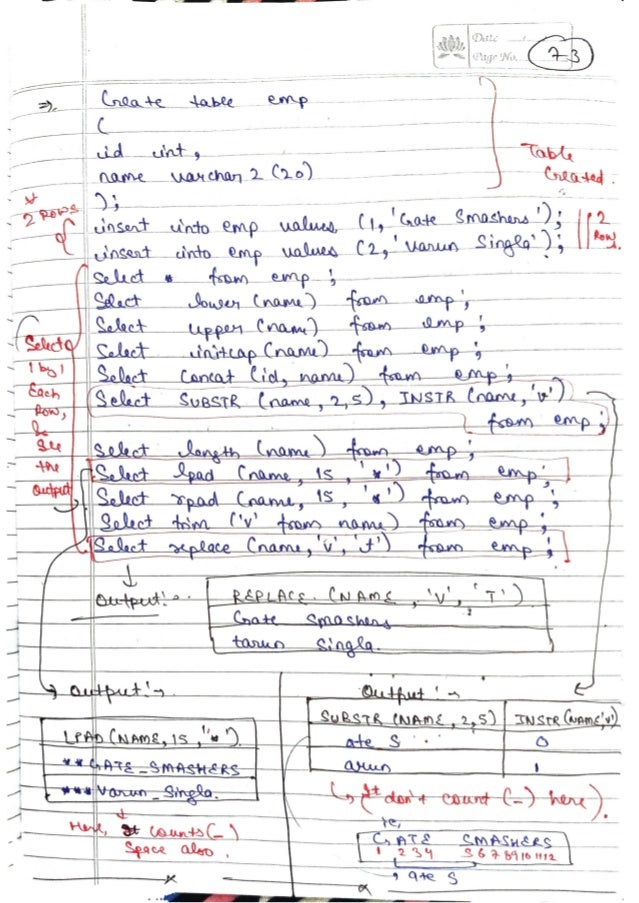 Date
Page No. 73
=>, Create table emp
(
id int,
name varchar2 (20)
);
Table Created.
* 2 ROWS
insert into emp values (1, 'Gate Smashers');
insert into emp values (2, 'Varun Singla');
2 Row.
Select * from emp;
Select lower (name) from emp;
Select upper (name) from emp;
Select initcap (name) from emp;
Select concat (id, name) from emp;
Select SUBSTR (name, 2, 5), INSTR (name, 'v')
from emp;
Select length (name) from emp;
Select lpad (name, 15, '*') from emp;
Select rpad (name, 15, '*') from emp;
Select trim ('v' from name) from emp;
Select replace (name, 'v', 't') from emp;
Select
1 by 1
Each
Row,
&
See
the
Output
Output:-
REPLACE (NAME, 'V', 'T')
Gate Smashers
tarun Singla.
Output:-
LPAD (NAME, 15, '*')
**GATE_SMASHERS
***Varun_Singla.
Here, it counts (-)
Space also.
Output:-
SUBSTR (NAME, 2, 5) INSTR (NAME, 'v')
ate S 0
arun 1
(It don't count (-) here).
ie,
GATE SMASHERS
1 2 3 4 5 6 7 8 9 10 11 12
ate S